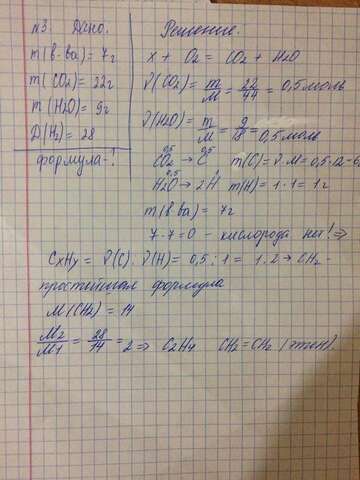 №3. Дано.
m(в-ва) = 7г
m(CO2) = 22г
m(H2O) = 9г
D(H2) = 28
формула-?
Решение.
x + O2 = CO2 + H2O
ν(CO2) = m/M = 22/44 = 0,5 моль
ν(H2O) = m/M = 9/18 = 0,5 моль
0,5 0,5
CO2 → C m(C) = ν·M = 0,5·12 = 6
0,5 1
H2O → 2H m(H) = 1·1 = 1г
m(в ва) = 7г
7-7=0 - кислорода нет! ⇒
CxHy = ν(C) : ν(H) = 0,5 : 1 = 1:2 → CH2 -
простейшая формула
M(CH2) = 14
M2/M1 = 28/14 = 2 ⇒ C2H4 CH2=CH2 (этен)